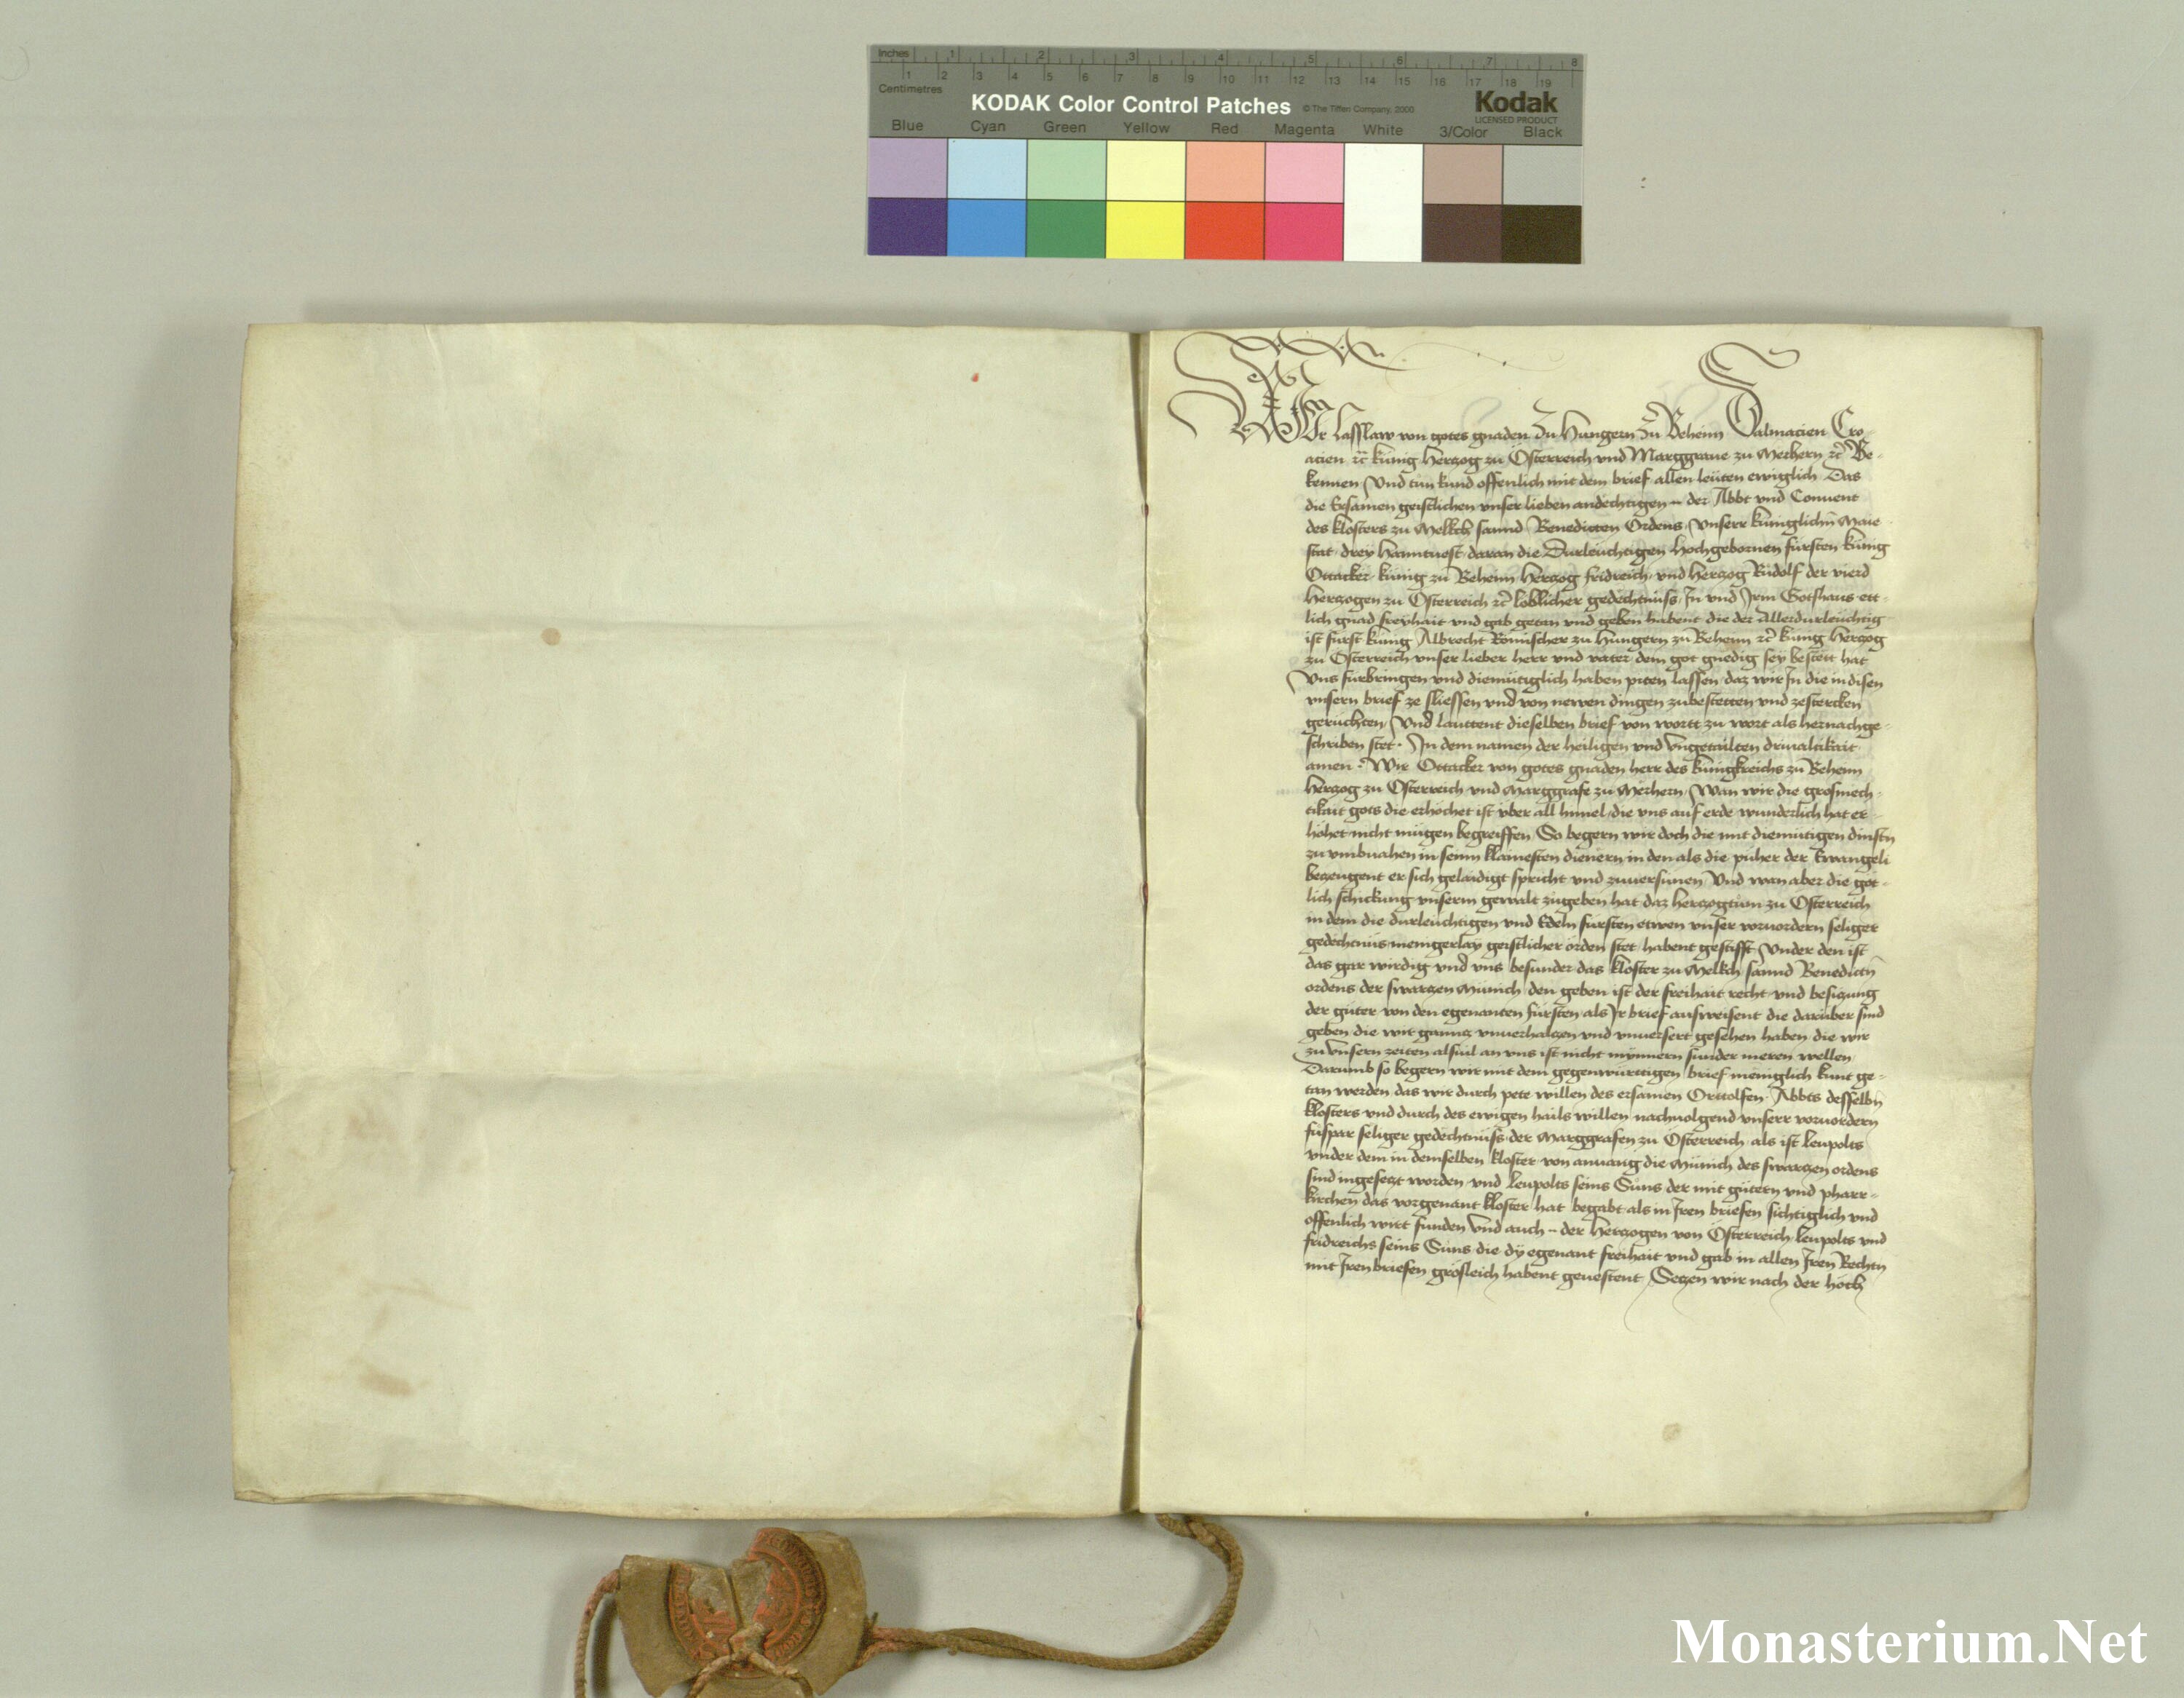 Inches 1 2 3 4 5 6 7 8
1 2 3 4 5 6 7 8 9 10 11 12 13 14 15 16 17 18 19
Centimetres
KODAK Color Control Patches © The Tiffen Company, 2000 Kodak
LICENSED PRODUCT
Blue Cyan Green Yellow Red Magenta White 3/Color Black
WIr Lasslaw von gotes gnaden Zu Hungern Zu Beheim Dalmacien Cro
acien etc kunig Herczog zu Österreich vnd Marggraue zu Merhern etc Be-
kennen Vnd tun kund offenlich mit dem brief allen leuten ewiglich Das
die Ersamen geistlichen vnser lieben andechtigen .. der Abbt vnd Conuent
des klosters zu Melkch sannd Benedicten Ordens Vnserr kuniglichn Maie
stat drey Hanntuest daran die Durleuchtigen Hochgebornen fürsten kunig
Ottacker kunig zu Beheim Herczog Fridreich vnd Herczog Rudolf der vierd
Herczogen zu Österreich etc loblicher gedechtnuss In vnd Irm Gotshaus ett
lich gnad freyhait vnd gab getan vnd geben habent die der Allerdurleuchtig
ist furst kunig Albrecht Römischer zu Hungern zu Beheim etc kunig Herczog
zu Österreich vnser lieber herr vnd vater dem got gnedig sey bestett hat
Vns furbringen vnd diemutiglich haben piten lassen daz wir In die in disen
vnsern brief ze sliessen vnd von newen dingen zubestetten vnd zestercken
geruchten Vnd lauttent dieselben brief von wortt zu wort als hernachge-
schriben stet. In dem namen der heiligen vnd Vngetailten driualtikait
amen. Wir Ottacker von gotes gnaden herr des kunigkreichs zu Beheim
Herczog zu Österreich vnd Marggrafe zu Merhern Wan wir die grosmech-
tikait gots die erhöchet ist vber all himel die vns auf erde wunderlich hat er-
höhet nicht mügen begreiffen So begern wir doch die mit diemutigen dinstn
zu vmbuahen in seinn klainesten dienern in den als die puher der Ewangeli
beczeugent er sich gelaidigt spricht vnd zuuersunen Vnd wan aber die göt-
lich schickung vnserm gewalt zugeben hat daz herczogtum zu Österreich
in dem die durleuchtigen vnd Edeln fursten etwen vnser voruordern seliger
gedechtnus menigerlay geistlicher örden stet habent gestifft Vnder den ist
das gar wirdig vnd vns besunder das kloster zu Melkch sannd Benedictn
ordens der swarczen Munich den geben ist der freihait recht vnd besiczung
der guter von den egenanten fürsten als Ir brief ausweisent die daruber sind
geben die wir gancz vnuerhalgen vnd vnuersert gesehen haben die wir
zu vnsern zeiten alsuil an vns ist nicht mynnern sunder meren wellen
Darumb so begern wir mit dem gegenwürttigen brief meniglich kunt ge-
tan werden das wir durch pete willen des ersamen Orttolfen Abbts desselbn
klosters vnd durch des ewigen hails willen nachuolgend vnserr voruordern
fuspar seliger gedechtnuss der Marggrafen zu Österreich als ist Leupolts
vnder dem in demselben kloster von anuang die Münich des swarczen ordens
sind ingeseczt worden vnd Leupolts seins Suns der mit gütern vnd pharr-
kirchen das vorgenant kloster hat begabt als in Iren briefen sichtiglich vnd
offenlich wirt funden Vnd auch .. der Herczogen von Österreich Leupolts vnd
fridreichs seins Suns die dy egenant freihait vnd gab in allen Iren Rechtn
mit Iren briefen grosleich habent geuestent Seczen wir nach der höch
Monasterium.Net